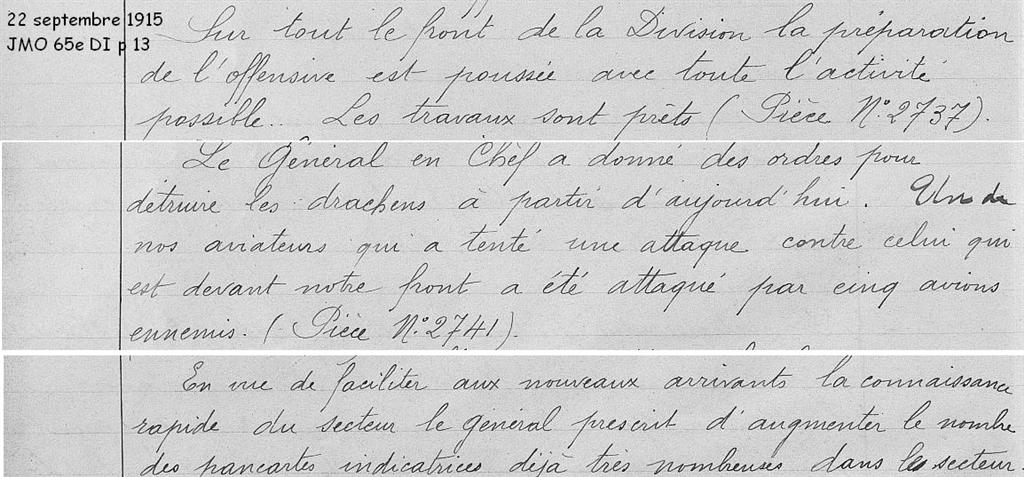 22 septembre 1915
JMO 65e DI p 13
Sur tout le front de la Division la préparation
de l'offensive est poussée avec toute l'activité
possible.. Les travaux sont prêts (Pièce N° 2737).
Le Général en Chef a donné des ordres pour
détruire les drachens à partir d'aujourd'hui. Un de
nos aviateurs qui a tenté une attaque contre celui qui
est devant notre front a été attaqué par cinq avions
ennemis. (Pièce N° 2741).
En vue de faciliter aux nouveaux arrivants la connaissance
rapide du secteur le général prescrit d'augmenter le nombre
des pancartes indicatrices déjà très nombreuses dans le secteur.